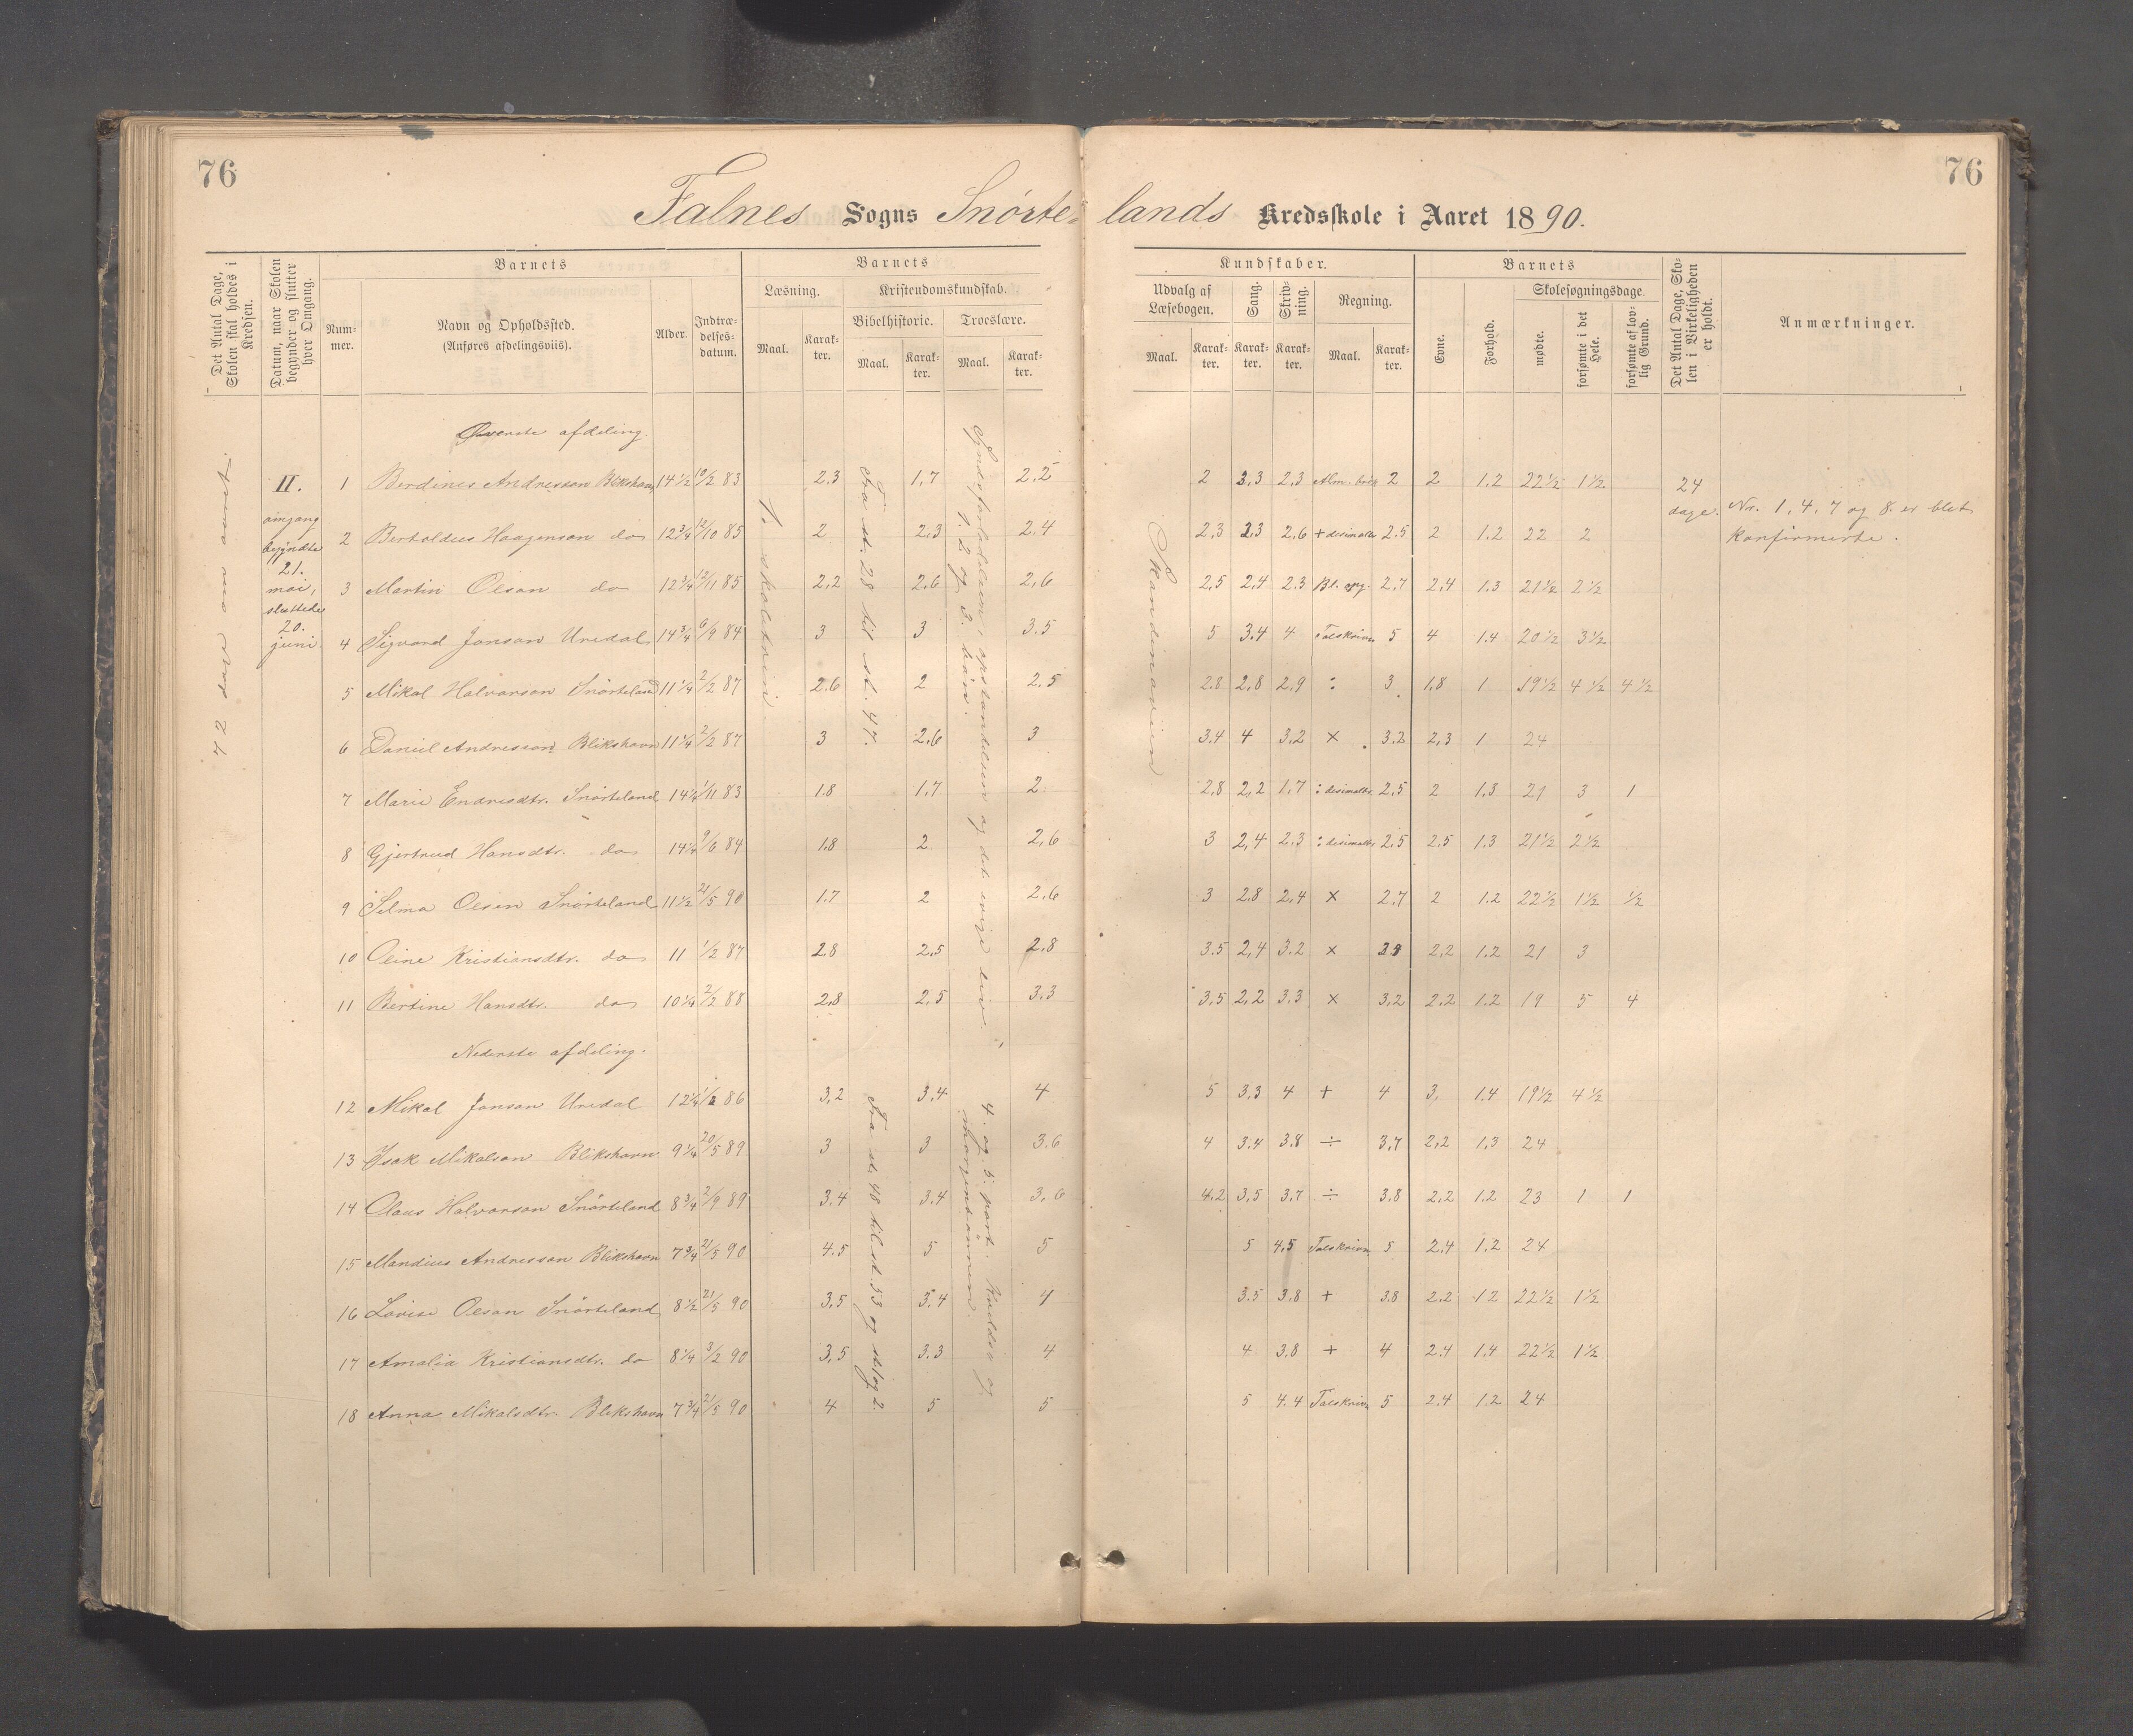 76
76
Falnes Sogns Snørte-lands Kredsskole i Aaret 1890.
Det Antal Dage, Skolen skal holdes i Kredsen.
Datum, naar Skolen begynder og slutter hver Omgang.
Barnets
Nummer.
Navn og Opholdssted.
(Anføres afdelingsviis).
Alder.
Indtrædelsesdatum.
Barnets
Læsning.
Maal.
Karakter.
Kristendomskundskab.
Bibelhistorie.
Maal.
Karakter.
Troeslære.
Maal.
Karakter.
Kundskaber.
Udvalg af Læsebogen.
Maal.
Karakter.
Sang.
Karakter.
Skrivning.
Karakter.
Regning.
Maal.
Karakter.
Barnets
Evne.
Forhold.
Skolesøgningsdage.
mødte.
forsømte i det Hele.
forsømte af lovlig Grund.
Det Antal Dage, Skolen i Virkeligheden er holdt.
Anmærkninger.
72 dage om aaret.
II. omgang begyndte 21. mai, sluttede 20. juni.
Øverste afdeling.
1 Berdines Andresson Blikshavn 14 1/2 10/2 83 2.3 1,7 2.2 2 3,3 2,3 Alm. brøk 2 2 1.2 22 1/2 1 1/2 24 dage.
2 Bertoldus Haagenson do 12 3/4 12/10 85 2 2,3 2.4 2,3 2,3 2.6 + desimalbr 2.5 2 1.2 22 2
3 Martin Olsen do 12 3/4 12/11 85 2,2 2,6 2,6 2,5 2,4 2.3 Bl. opg. 2,7 2,4 1.3 21 1/2 2 1/2
4 Sigvard Jonson Uredal 14 3/4 6/9 84 3 3 3.5 5 3.4 4 Talskrivn 5 4 1.4 20 1/2 3 1/2
5 Mikal Halvorson Snørteland 11 1/4 2/2 87 2.6 2 2,5 2.8 2,8 2,9 : 3 1,8 1 19 1/2 4 1/2 4 1/2
6 Daniel Andresson Blikshavn 11 1/4 2/2 87 3 2,6 3 3.4 4 3,2 × 3.2 2,3 1 24
7 Marie Endresdtr. Snørteland 14 1/4 1/11 83 1.8 1,7 2 2,8 2,2 1,7 : desimalbr. 2,5 2 1,3 21 3 1
8 Gjertrud Hansdtr. do 14 1/4 9/6 84 1.8 2 2,6 3 2,4 2.3 : desimalbr 2,5 2.5 1.3 21 1/2 2 1/2
9 Selma Olsen Snørteland 11 1/2 21/5 90 1.7 2 2.6 3 2.8 2,4 × 2,7 2 1.2 22 1/2 1 1/2 1/2
10 Oline Kristiansdtr. do 11 1/2 87 2.8 2,5 2,8 3.5 2,4 3.2 × 2,2 1.2 21 3
11 Bertine Hansdtr. do 10 1/4 2/2 88 2,8 2,5 3.3 3,5 2,2 3,3 × 3,2 2.2 1.2 19 5 4
Nederste afdeling.
12 Mikal Jonson Uredal 12 1/4 1/2 86 3,2 3,4 4 5 3,3 4 + 4 3, 1.4 19 1/2 4 1/2
13 Isak Mikalson Blikshavn 9 1/4 20/5 89 3 3 3.6 4 3.4 3.8 ÷ 3,7 2,2 1,3 24
14 Olaus Halvorson Snørteland 8 3/4 2/9 89 3.4 3.4 3,6 4,2 3,5 3,7 ÷ 3,8 2,2 1.2 23 1 1
15 Mandius Andresson Blikshavn 7 3/4 21/5 90 4.5 5 5 5 4,5 Talskrivn 5 2.4 1.2 24
16 Lovise Olsen Snørteland 8 1/2 21/5 90 3,5 3,4 4 3.5 3,8 + 3.8 2.2 1 2 22 1/2 1 1/2
17 Amalia Kristiansdtr. do 8 1/4 3/2 90 3,5 3.3 4 4 3,8 + 4 2.4 1.4 22 1/2 1 1/2
18 Anna Mikalsdtr. Blikshavn 7 3/4 21/5 90 4 5 5 5 4.4 Talskrivn 5 2.4 1.2 24
Fra st. 28 til st. 47.
Syndsforladelsen, opstandelsen og det evige liv. 1. 2 og 3. bøn.
Skandinavien
Fra st. 48 til st. 53 og st 1 og 2.
4. og 5. part. Kvelds og morgenbønnen.
Nr. 1, 4, 7 og 8 er blet konfirmerte.